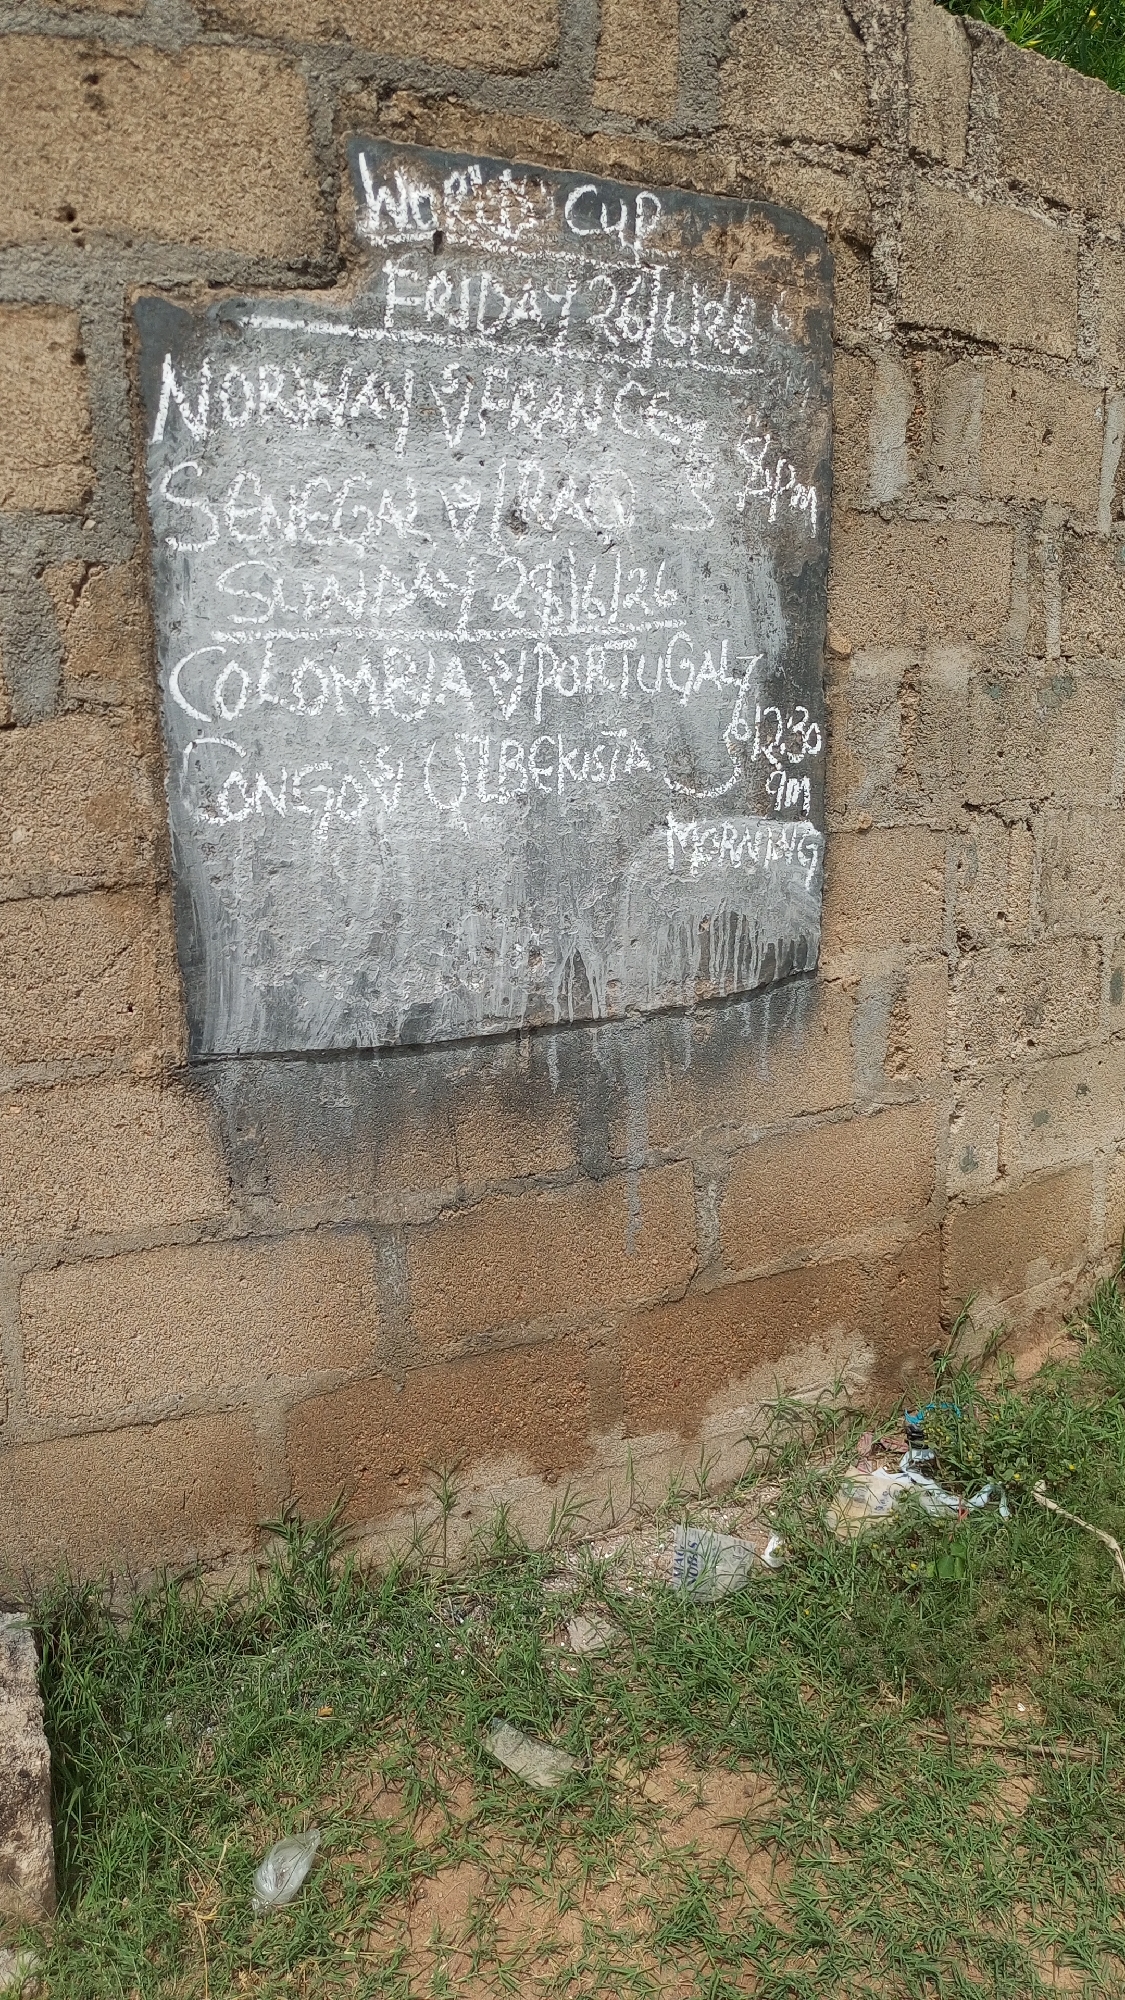 WORLD CUP
FRIDAY 26/6/26
NORWAY VS FRANCE
8pm
SENEGAL VS IRAQ
SUNDAY 28/6/26
COLOMBIA VS PORTUGAL
12:30
am
CONGO VS UZBEKISTA
MORNING